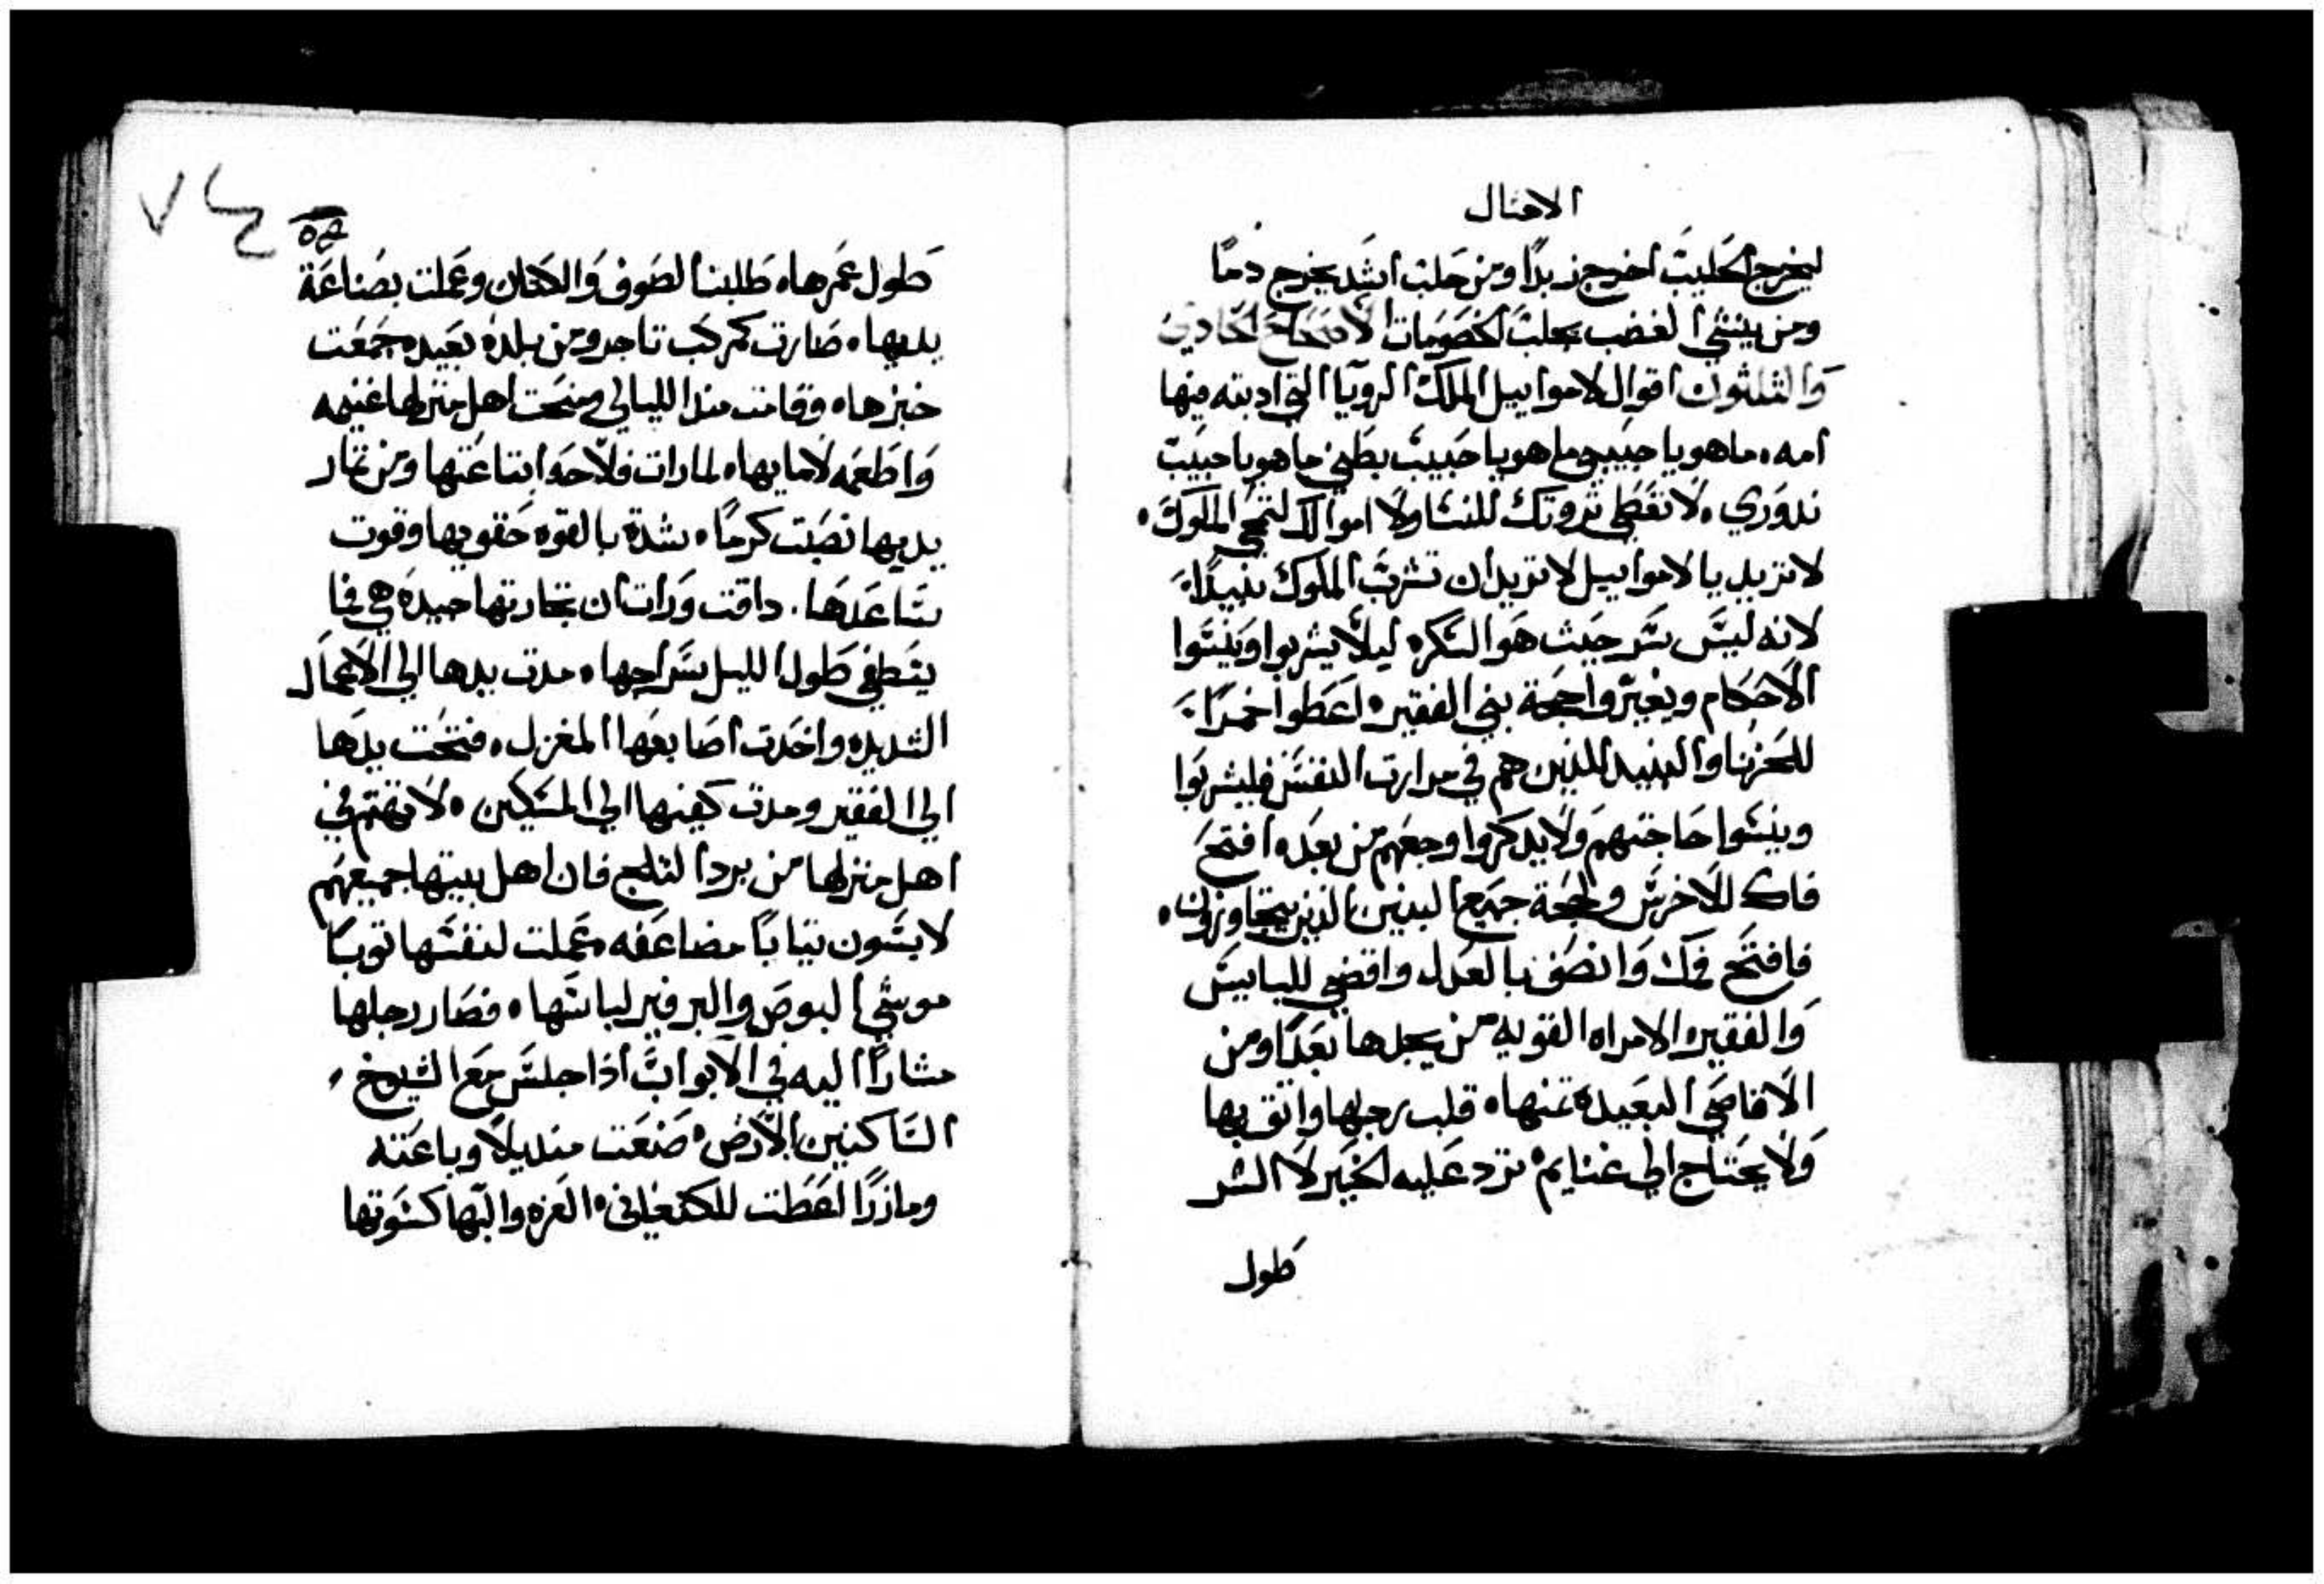 الامثال
ليخرج الحليب اخرج زبدًا ومن حلب اشد يخرج دمًا
ومن ينشي الغضب يجلب الخصومات الاصحاح الحادي
والثلثون اقوال لاموابيل الملك الرويا التي ادبته فيها
امه، ما هو يا حبيبي ما هو يا حبيب بطني ما هو يا حبيب
ندوري، لا تعطي ثروتك للنسا ولا اموالك لتمحي الملوك،
لا تريد يا لاموابيل لا تريد ان تشرب الملوك نبيدًا،
لانه ليس سر حيث هو السكره ليلًا يشربوا وينسوا
الاحكام ويغيروا حجة بني الفقير، اعطوا خمرًا،
للحزنا والنبيد للدين هم في مرارت النفس فليشربوا
وينسوا حاجتهم ولا يدكروا وجعهم من بعده افتح
فاك للاخرس ولحجة جميع البنين الذين يتجاوزون،
فافتح فمك وانصف بالعدل واقضي للبابيس
والفقير، الامراه القويه من يجدها بعدًا ومن
الاقاصي البعيدة تمنها، قلب رجلها واثق بها
ولا يحتاج الي غنايم، ترد عليه الخير لا الشر
طول
٧٤
طول عمرها، طلبت الصوف والكتان وعملت بصناعة
يديها، صارت كمركب تاجر ومن بلده بعيده جمعت
خبزها، وقامت مند الليالي ومنحت اهل منزلها غنيمه
واطعمه لامايها، لما رات فلاحه ابتاعتها ومن تمار
يديها نصبت كرمًا، شدة بالقوه حقويها وقوت
ساعدها. داقت ورات ان تجارتها جيدة هي فما
ينطفي طول الليل سراجها، مدت يدها الي الاعمال
الشديده واخدت اصابعها المغزل، فتحت يدها
الي الفقير ومدت كفيها الي المسكين، لا تهتم في
اهل منزلها من برد الثلج فان اهل بيتها جميعهم
لابسون تيابًا مضاعفه، عملت لنفسها توبًا
موشي البوص والبرفير لباسها، فصار رجلها
مشارًا اليه في الابواب اذا جلس مع الشيوخ،
الساكنين الارض، صنعت منديلًا وباعته
ومازرًا اعطت للكنعاني، العزه والبها كسوتها